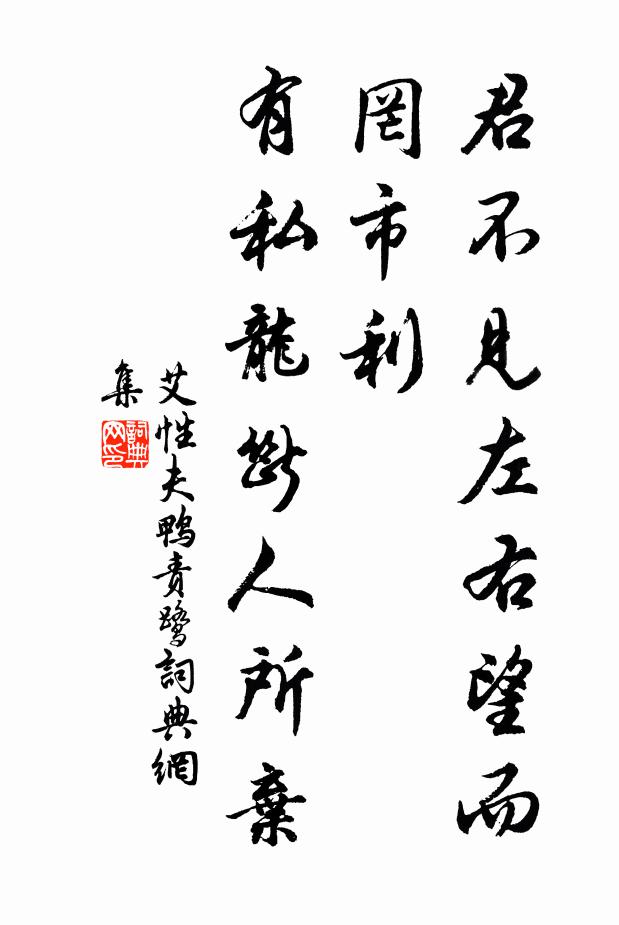 君不見左右望而
罔市利
有私龍斷人所棄
艾性夫鴨責鷺詞典網
集
詞典
网印